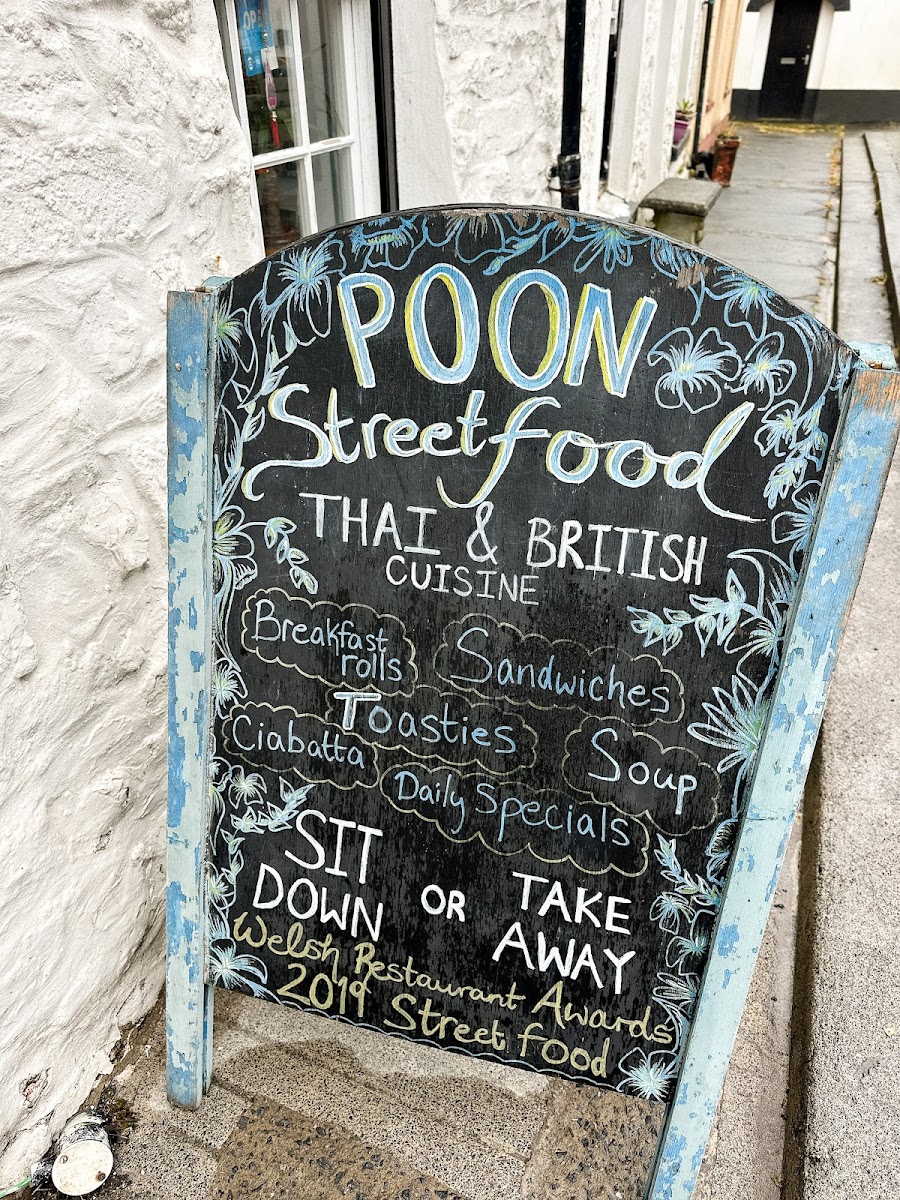 OPE
POON
Street food
THAI & BRITISH
CUISINE
Breakfast
rolls
Sandwiches
Toasties
Ciabatta
Soup
Daily Specials
SIT
DOWN
OR
TAKE
AWAY
Welsh Restaurant Awards
2019 Street food